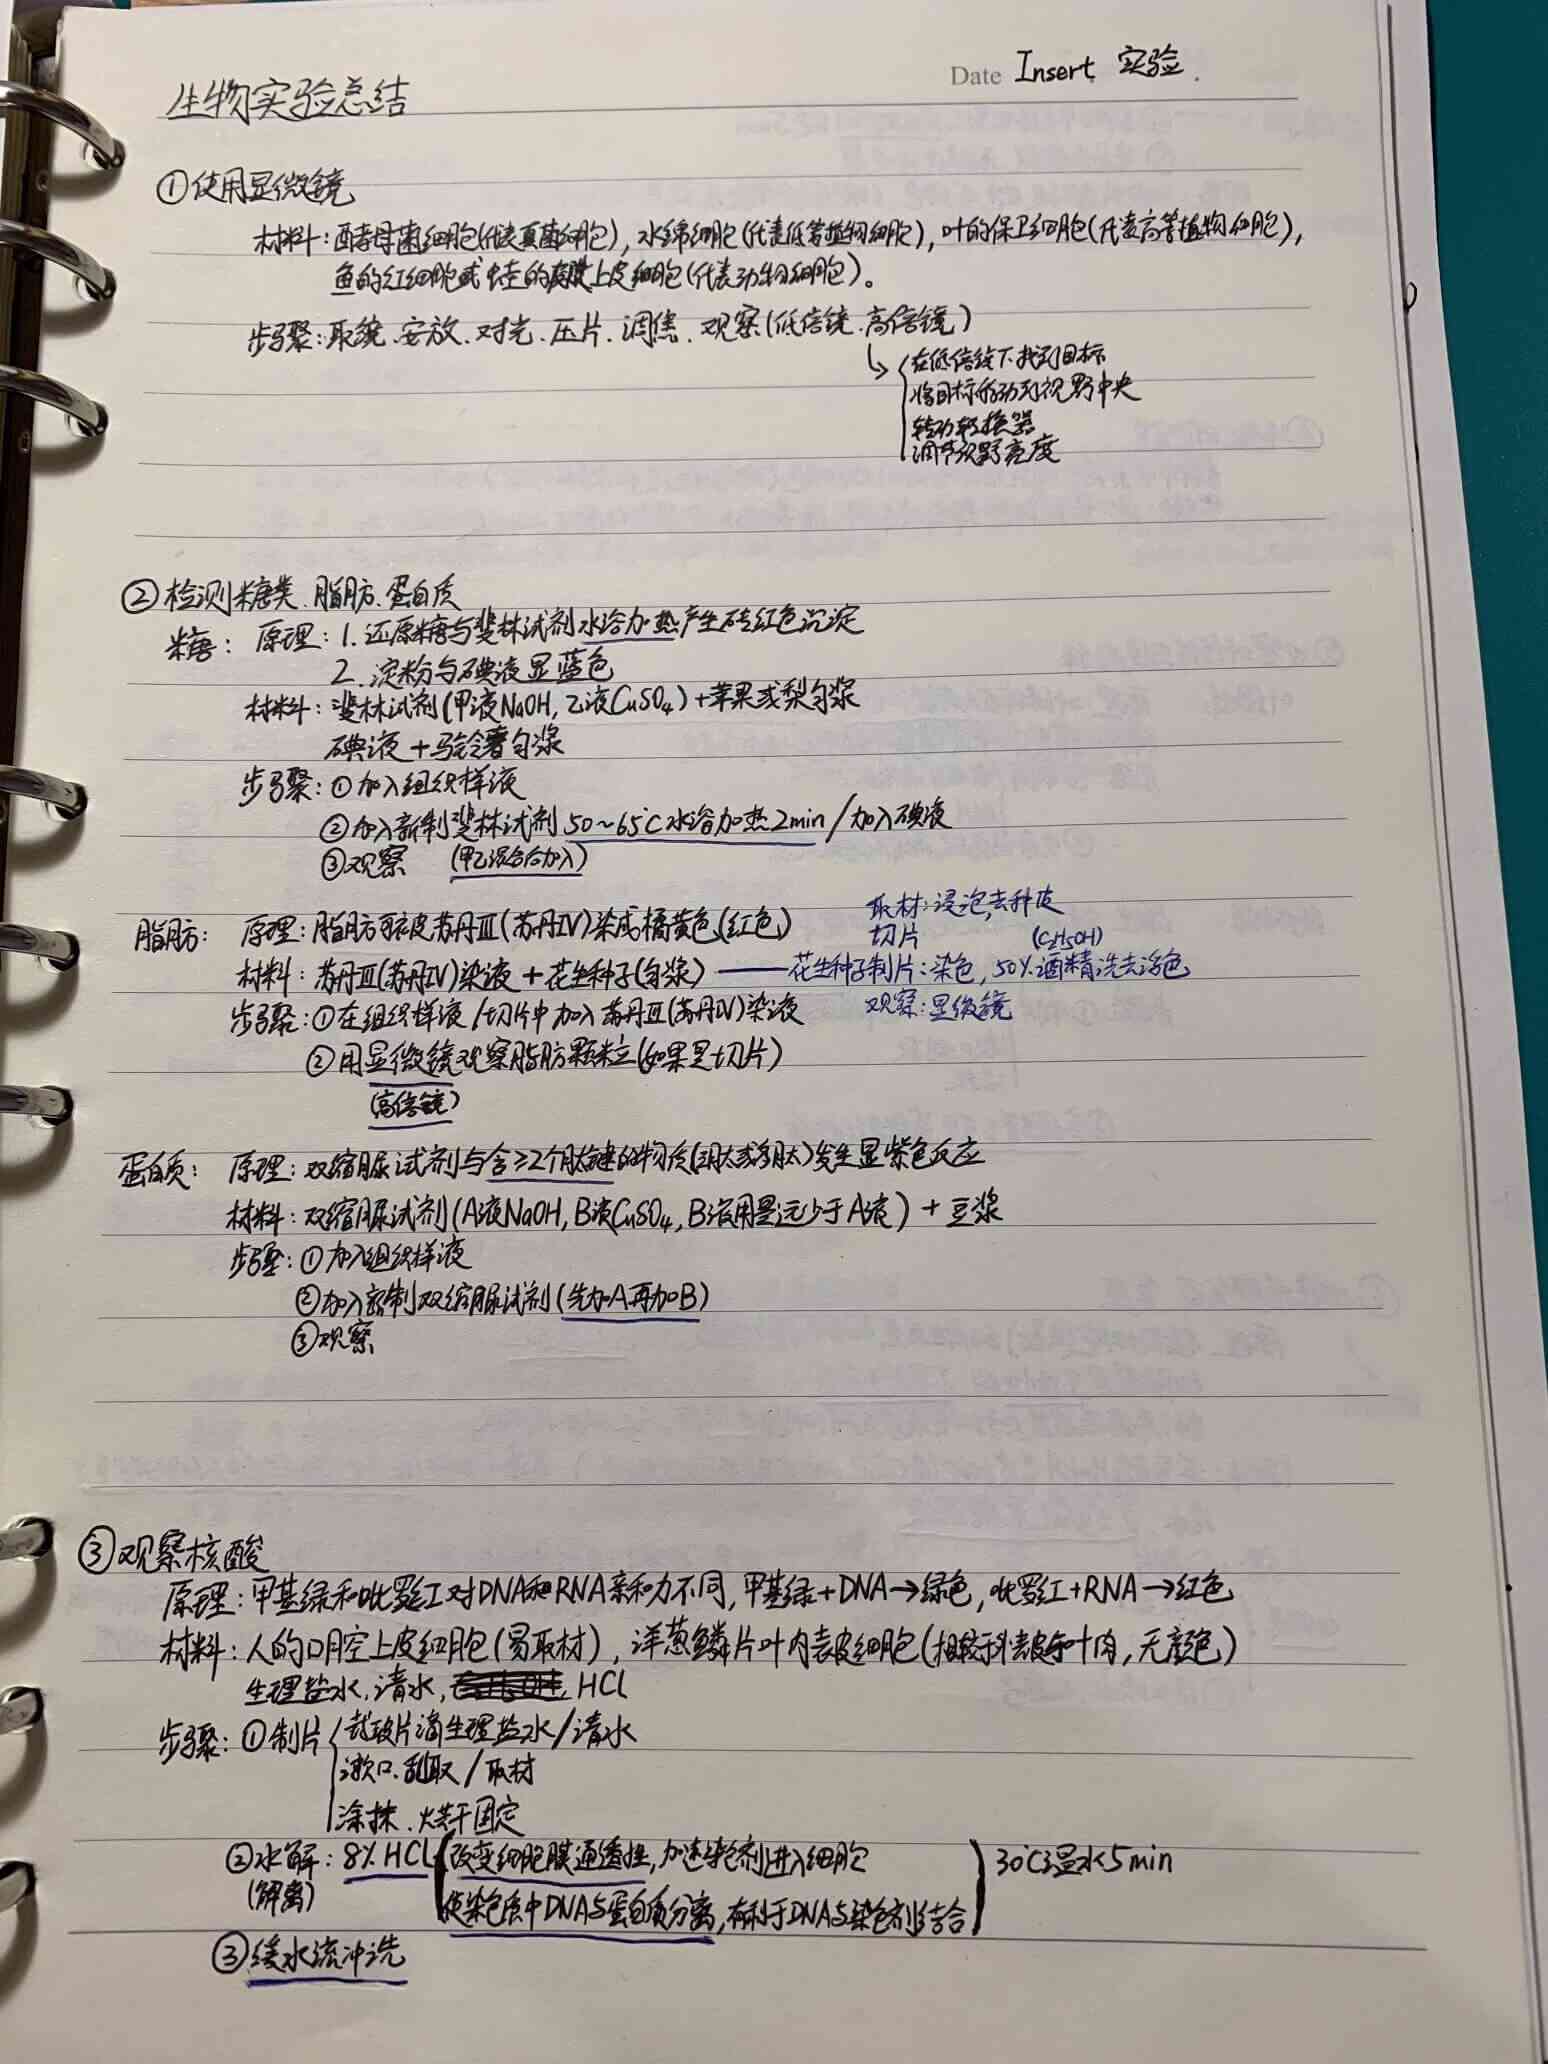 Date Insert 实验.
生物实验总结
①使用显微镜
材料:酵母菌细胞(代表真菌细胞),水绵细胞(代表低等植物细胞),叶的保卫细胞(代表高等植物细胞),
鱼的红细胞或蛙的皮肤上皮细胞(代表动物细胞)。
步骤:取镜.安放.对光.压片.调焦.观察(低倍镜.高倍镜)
在低倍镜下找到目标
将目标移动到视野中央
转动转换器
调节视野亮度
②检测糖类.脂肪.蛋白质
糖: 原理:1.还原糖与斐林试剂水浴加热产生砖红色沉淀
2.淀粉与碘液显蓝色
材料:斐林试剂(甲液NaOH,乙液CuSO₄)+苹果或梨匀浆
碘液+马铃薯匀浆
步骤:①加入组织样液
②加入新制斐林试剂50~65℃水浴加热2min/加入碘液
③观察 (甲乙混合后加入)
脂肪: 原理:脂肪可被苏丹Ⅲ(苏丹Ⅳ)染成橘黄色(红色) 取材:浸泡,去种皮
切片 (C₂H₅OH)
材料:苏丹Ⅲ(苏丹Ⅳ)染液+花生种子(匀浆)——花生种子制片:染色,50%酒精洗去浮色
步骤:①在组织样液/切片中加入苏丹Ⅲ(苏丹Ⅳ)染液 观察:显微镜
②用显微镜观察脂肪颗粒(如果是切片)
(高倍镜)
蛋白质: 原理:双缩脲试剂与含≥2个肽键的物质(三肽或多肽)发生显紫色反应
材料:双缩脲试剂(A液NaOH,B液CuSO₄,B液用量远少于A液)+豆浆
步骤:①加入组织样液
②加入新制双缩脲试剂(先加A再加B)
③观察
③观察核酸
原理:甲基绿和吡罗红对DNA和RNA亲和力不同,甲基绿+DNA→绿色,吡罗红+RNA→红色
材料:人的口腔上皮细胞(易取材),洋葱鳞片叶内表皮细胞(相较于外表皮和叶肉,无颜色)
生理盐水,清水, HCl
步骤:①制片 载玻片滴生理盐水/清水
漱口.刮取/取材
涂抹.烘干固定
②水解:8%HCl 改变细胞膜通透性,加速染色剂进入细胞 30℃温水5min
(解离) 使染色质中DNA与蛋白质分离,有利于DNA与染色剂结合
③缓水流冲洗